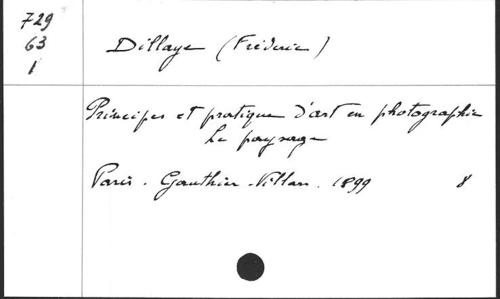 729
63
1
Dillaye (Frédéric)
Principes et pratique d'art en photographie
Le paysage
Paris. Gauthier-Villars. 1899 8